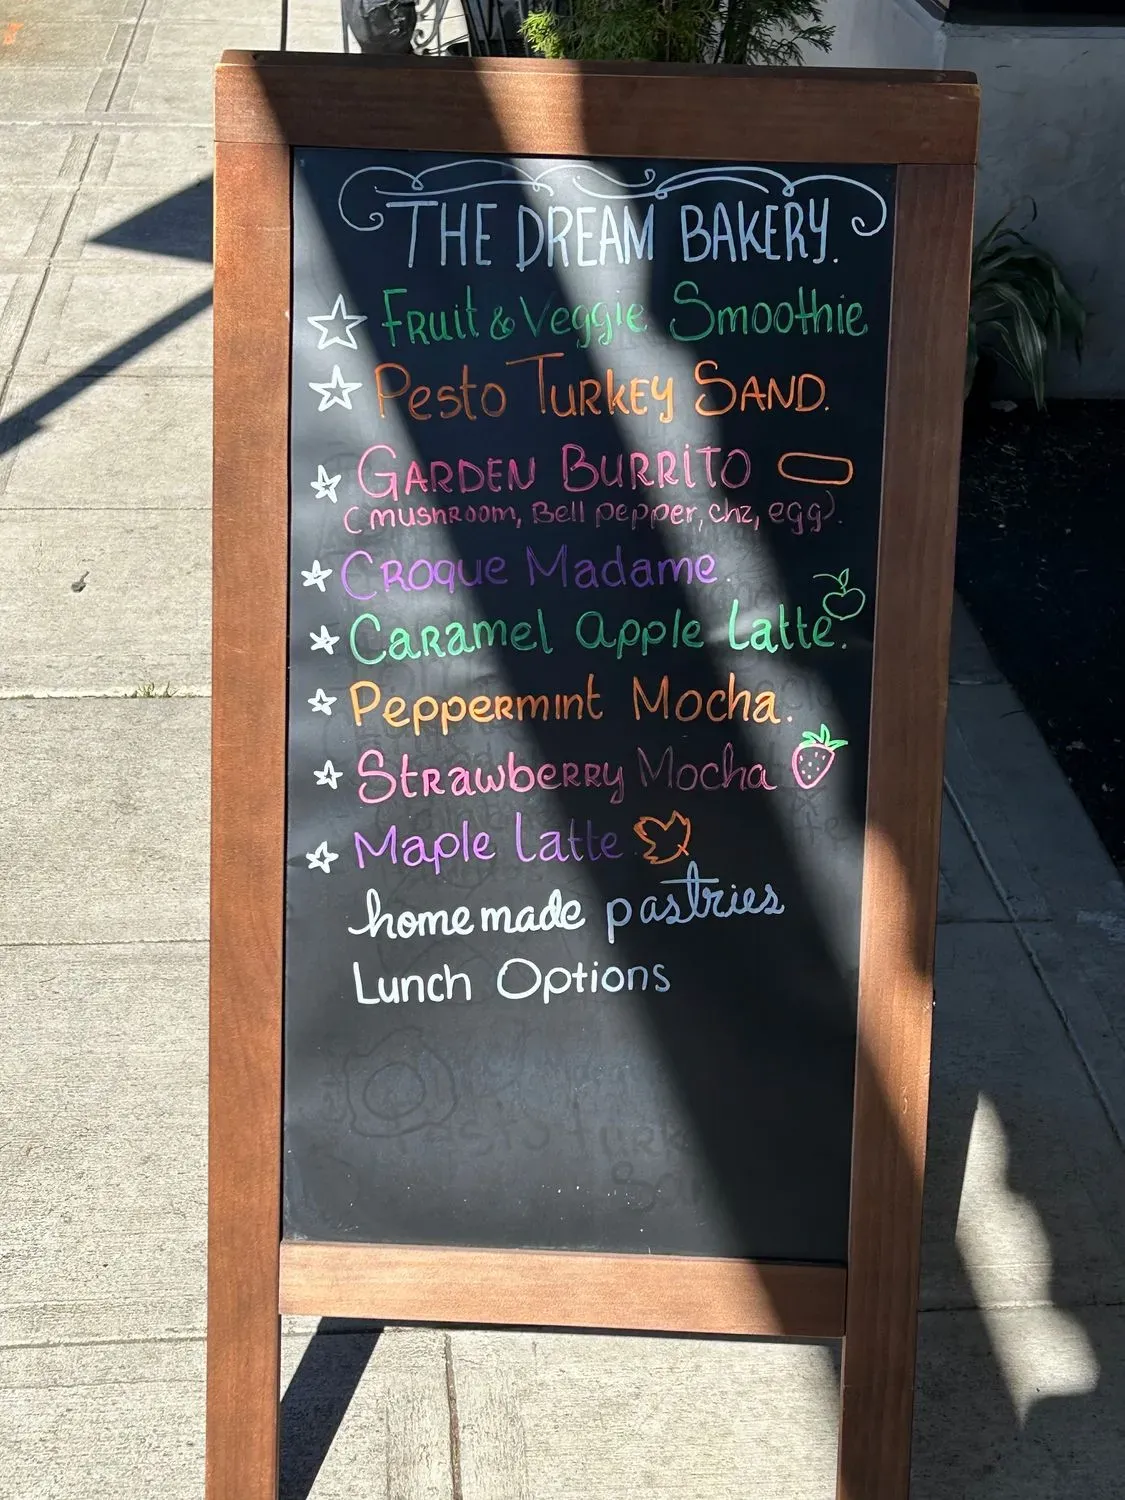 THE DREAM BAKERY.
Fruit & Veggie Smoothie
Pesto Turkey Sand.
Garden Burrito
(mushroom, Bell pepper, chz, egg).
Croque Madame.
Caramel apple Latte.
Peppermint Mocha.
Strawberry Mocha
Maple Latte
homemade pastries
Lunch Options